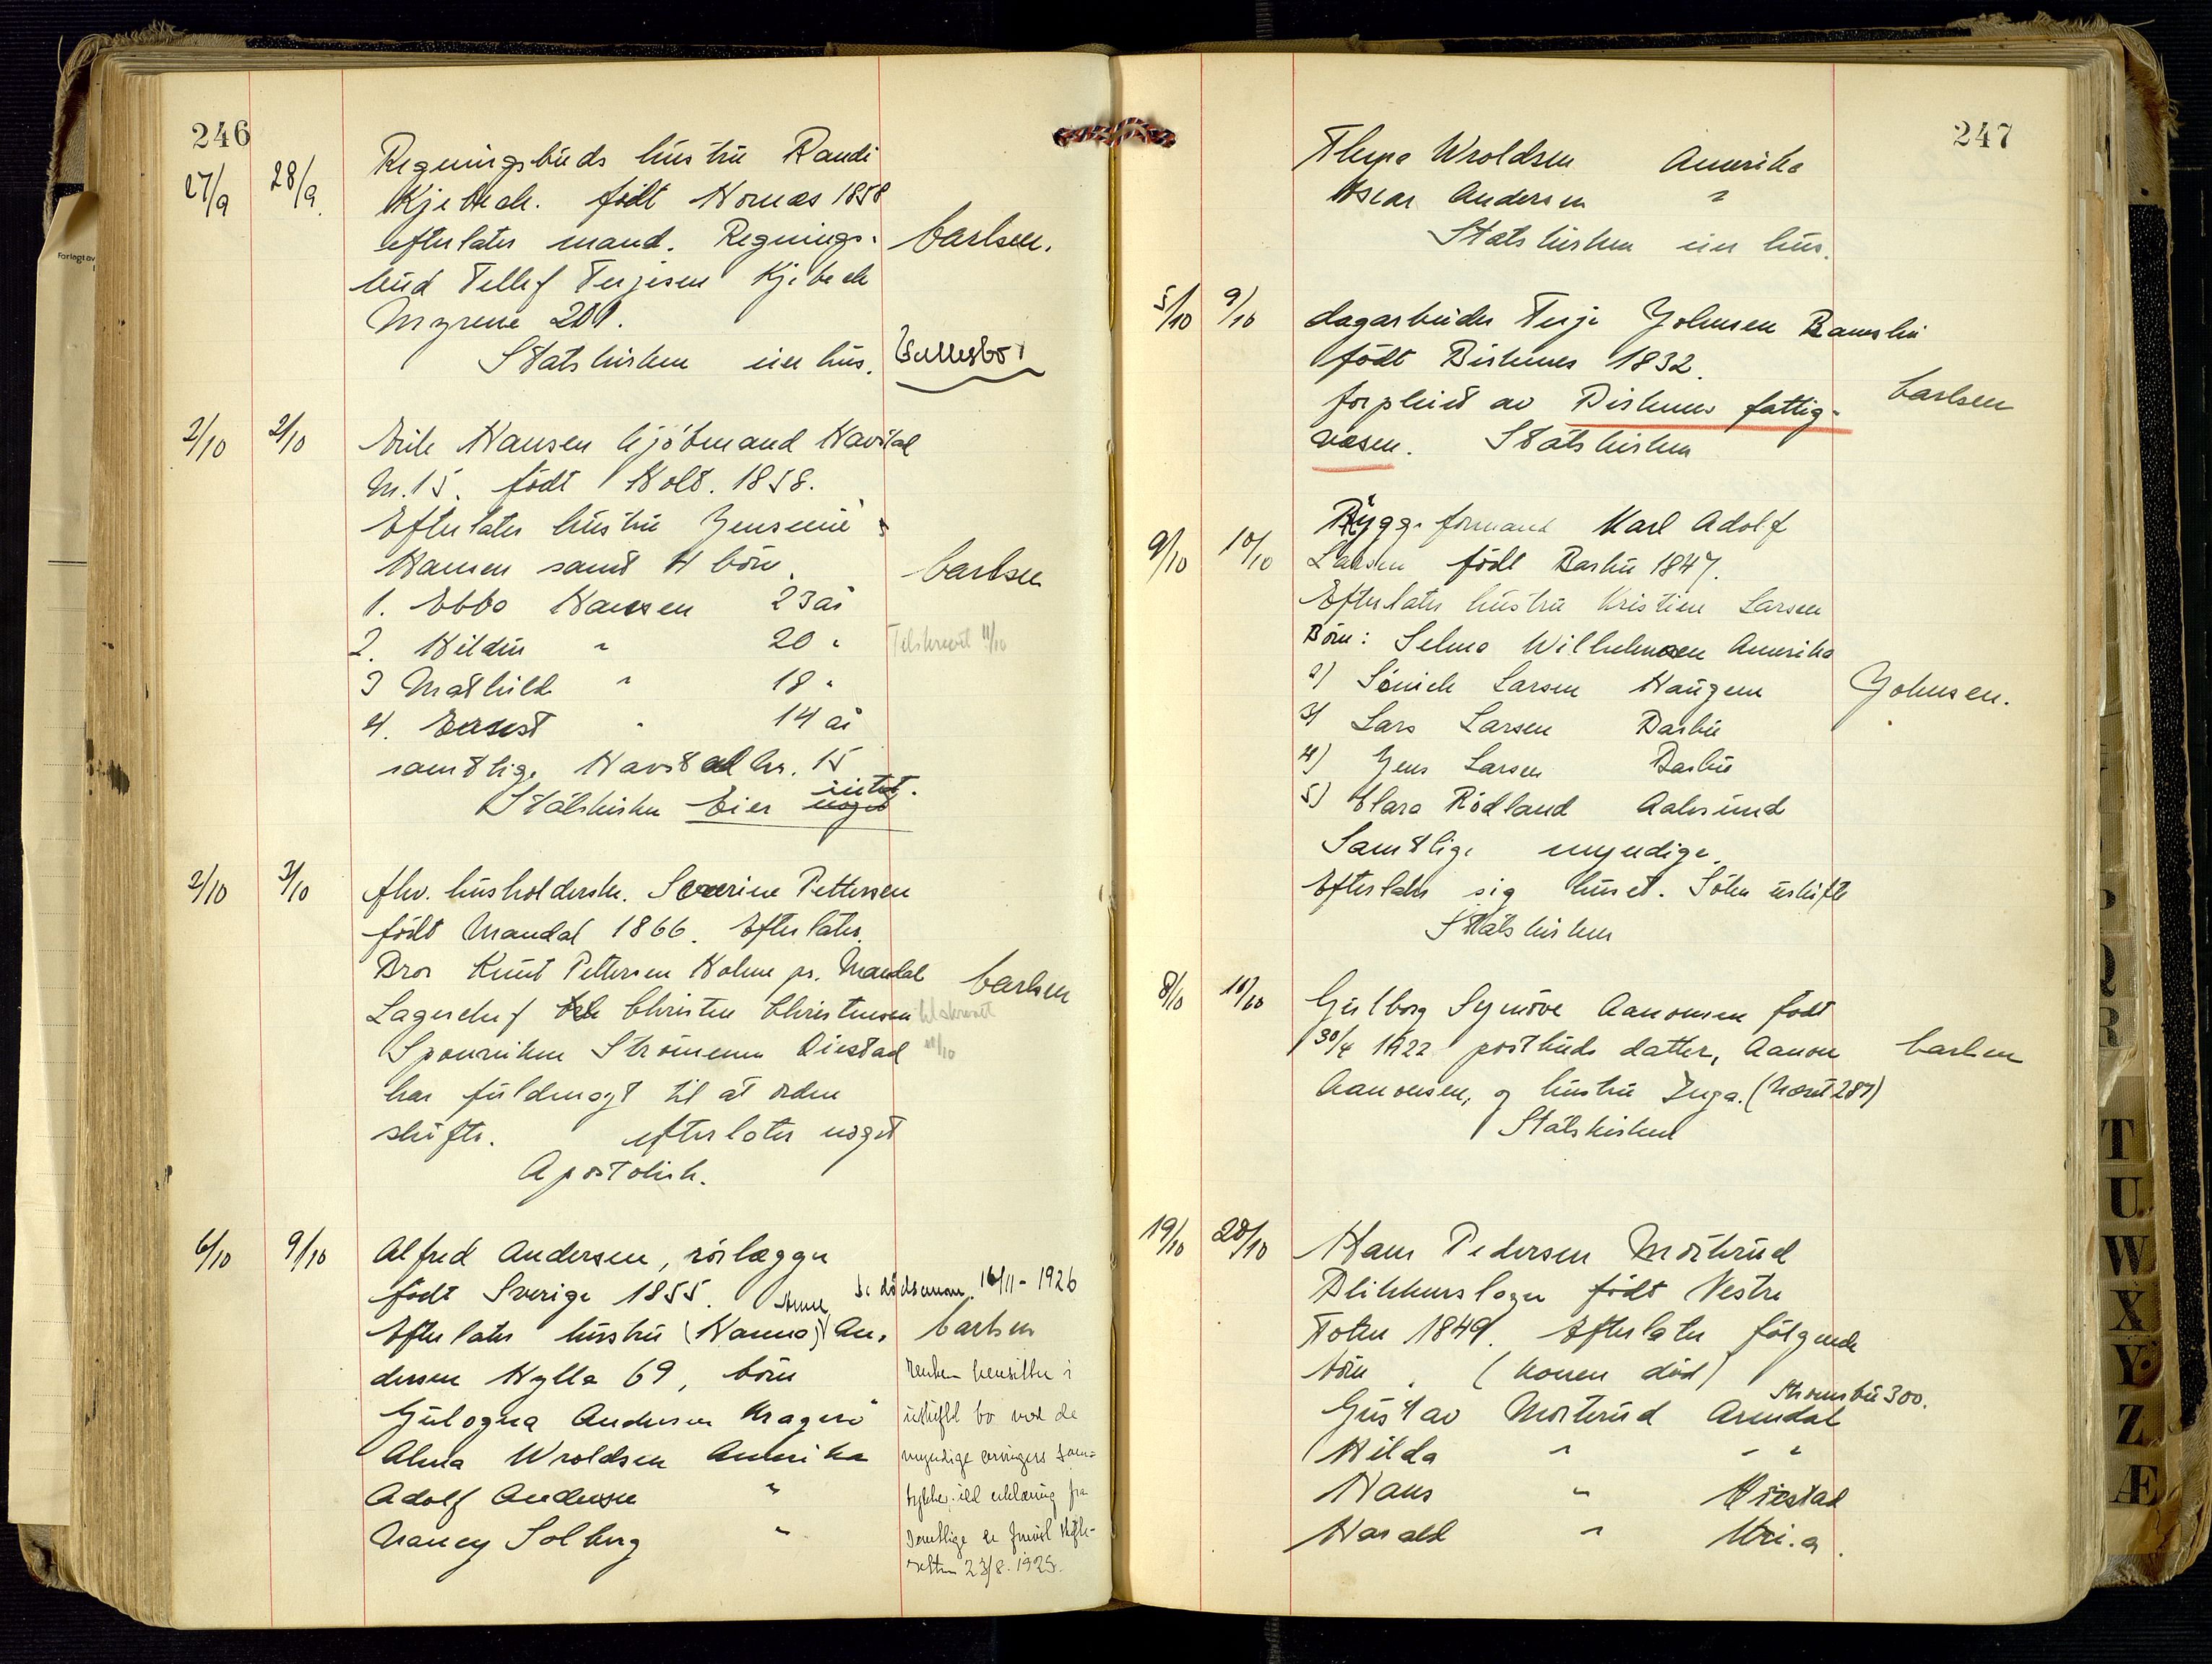 246
27/9 28/9 Regningsbuds hustru Randi
Kjebeck. født Hornes 1858
efterlater mand. Regnings-
bud Tellef Terjesen Kjebeck
Myrene 201.
Statskirken eier hus.
Carlsen.
2/10 2/10 Erik Hansen kjøbmand Havstad
M.15. født Holt. 1858.
Efterlater hustru Jensine
Hansen samt 4 børn.
Carlsen
1. Ebba Hansen 23 år
2. Hildur " 20 "
Tilskrevet 11/10
3 Mathilde " 18 "
4. Ernst " 14 år
samtlige Havstad nr. 15
Statskirken Eier noget intet.
2/10 3/10 fhv. husholderske. Severine Pettersen
født Mandal 1866. Efterlater
Bror Knut Pettersen Holme pr. Mandal
Carlsen
Lagerchef Christen Christensen
tilskrevet
Strømmen Öiestad
11/10
har fuldmagt til at ordne
skifte. efterlater noget
Apostolisk.
6/10 9/10 Alfred Andersen, rørlægger
født Sverige 1855.
16/11 - 1926
Efterlater hustru (Hanna) An-
Carlsen
dersen Hylla 69, børn
Enken hensitter i
Gulogna Andersen Kragerø
uskiftet bo med de
Alma Wroldsen Amerika
myndige arvingers sam-
Adolf Andersen "
tykke. ill erklæring fra
Nancy Solberg "
samtlige er
23/8. 1925.
247
Thyra Wroldsen Amerika
Oscar Andersen "
Statskirken eier hus.
5/10 9/10 dagarbeider Terje Johnsen Ramslie
født Birkenes 1832.
forpleiet av Birkenes fattig-
Carlsen
væsen. Statskirken
9/10 10/10 Brygge formand Karl Adolf
Larsen født Barbu 1847.
Efterlater hustru Kristine Larsen
Børn: Selma Wilhelmsen Amerika
2) Sønich Larsen Haugene
Johnsen.
3) Lars Larsen Barbu
4) Jens Larsen Barbu
5) Clara Rødland Aalesund
Samtlige myndige.
Efterlater sig huset. Söker uskifte
Statskirken
8/10 10/10 Gulborg Synöve Aanonsen født
30/4 1922 postbuds datter, Aanon
Carlsen
Aanonsen, og hustru Inga.
Statskirken
19/10 20/10 Hans Pedersen Mosterud
Blikkenslager født Vestre
Toten 1849. Efterlater følgende
børn. (konen død)
Strømsbu 300.
Gustav Mosterud Arendal
Hilda " " "
Hans " Öiestad
Harald " Kri.a.
T
U
W
X
Y
Z
Æ